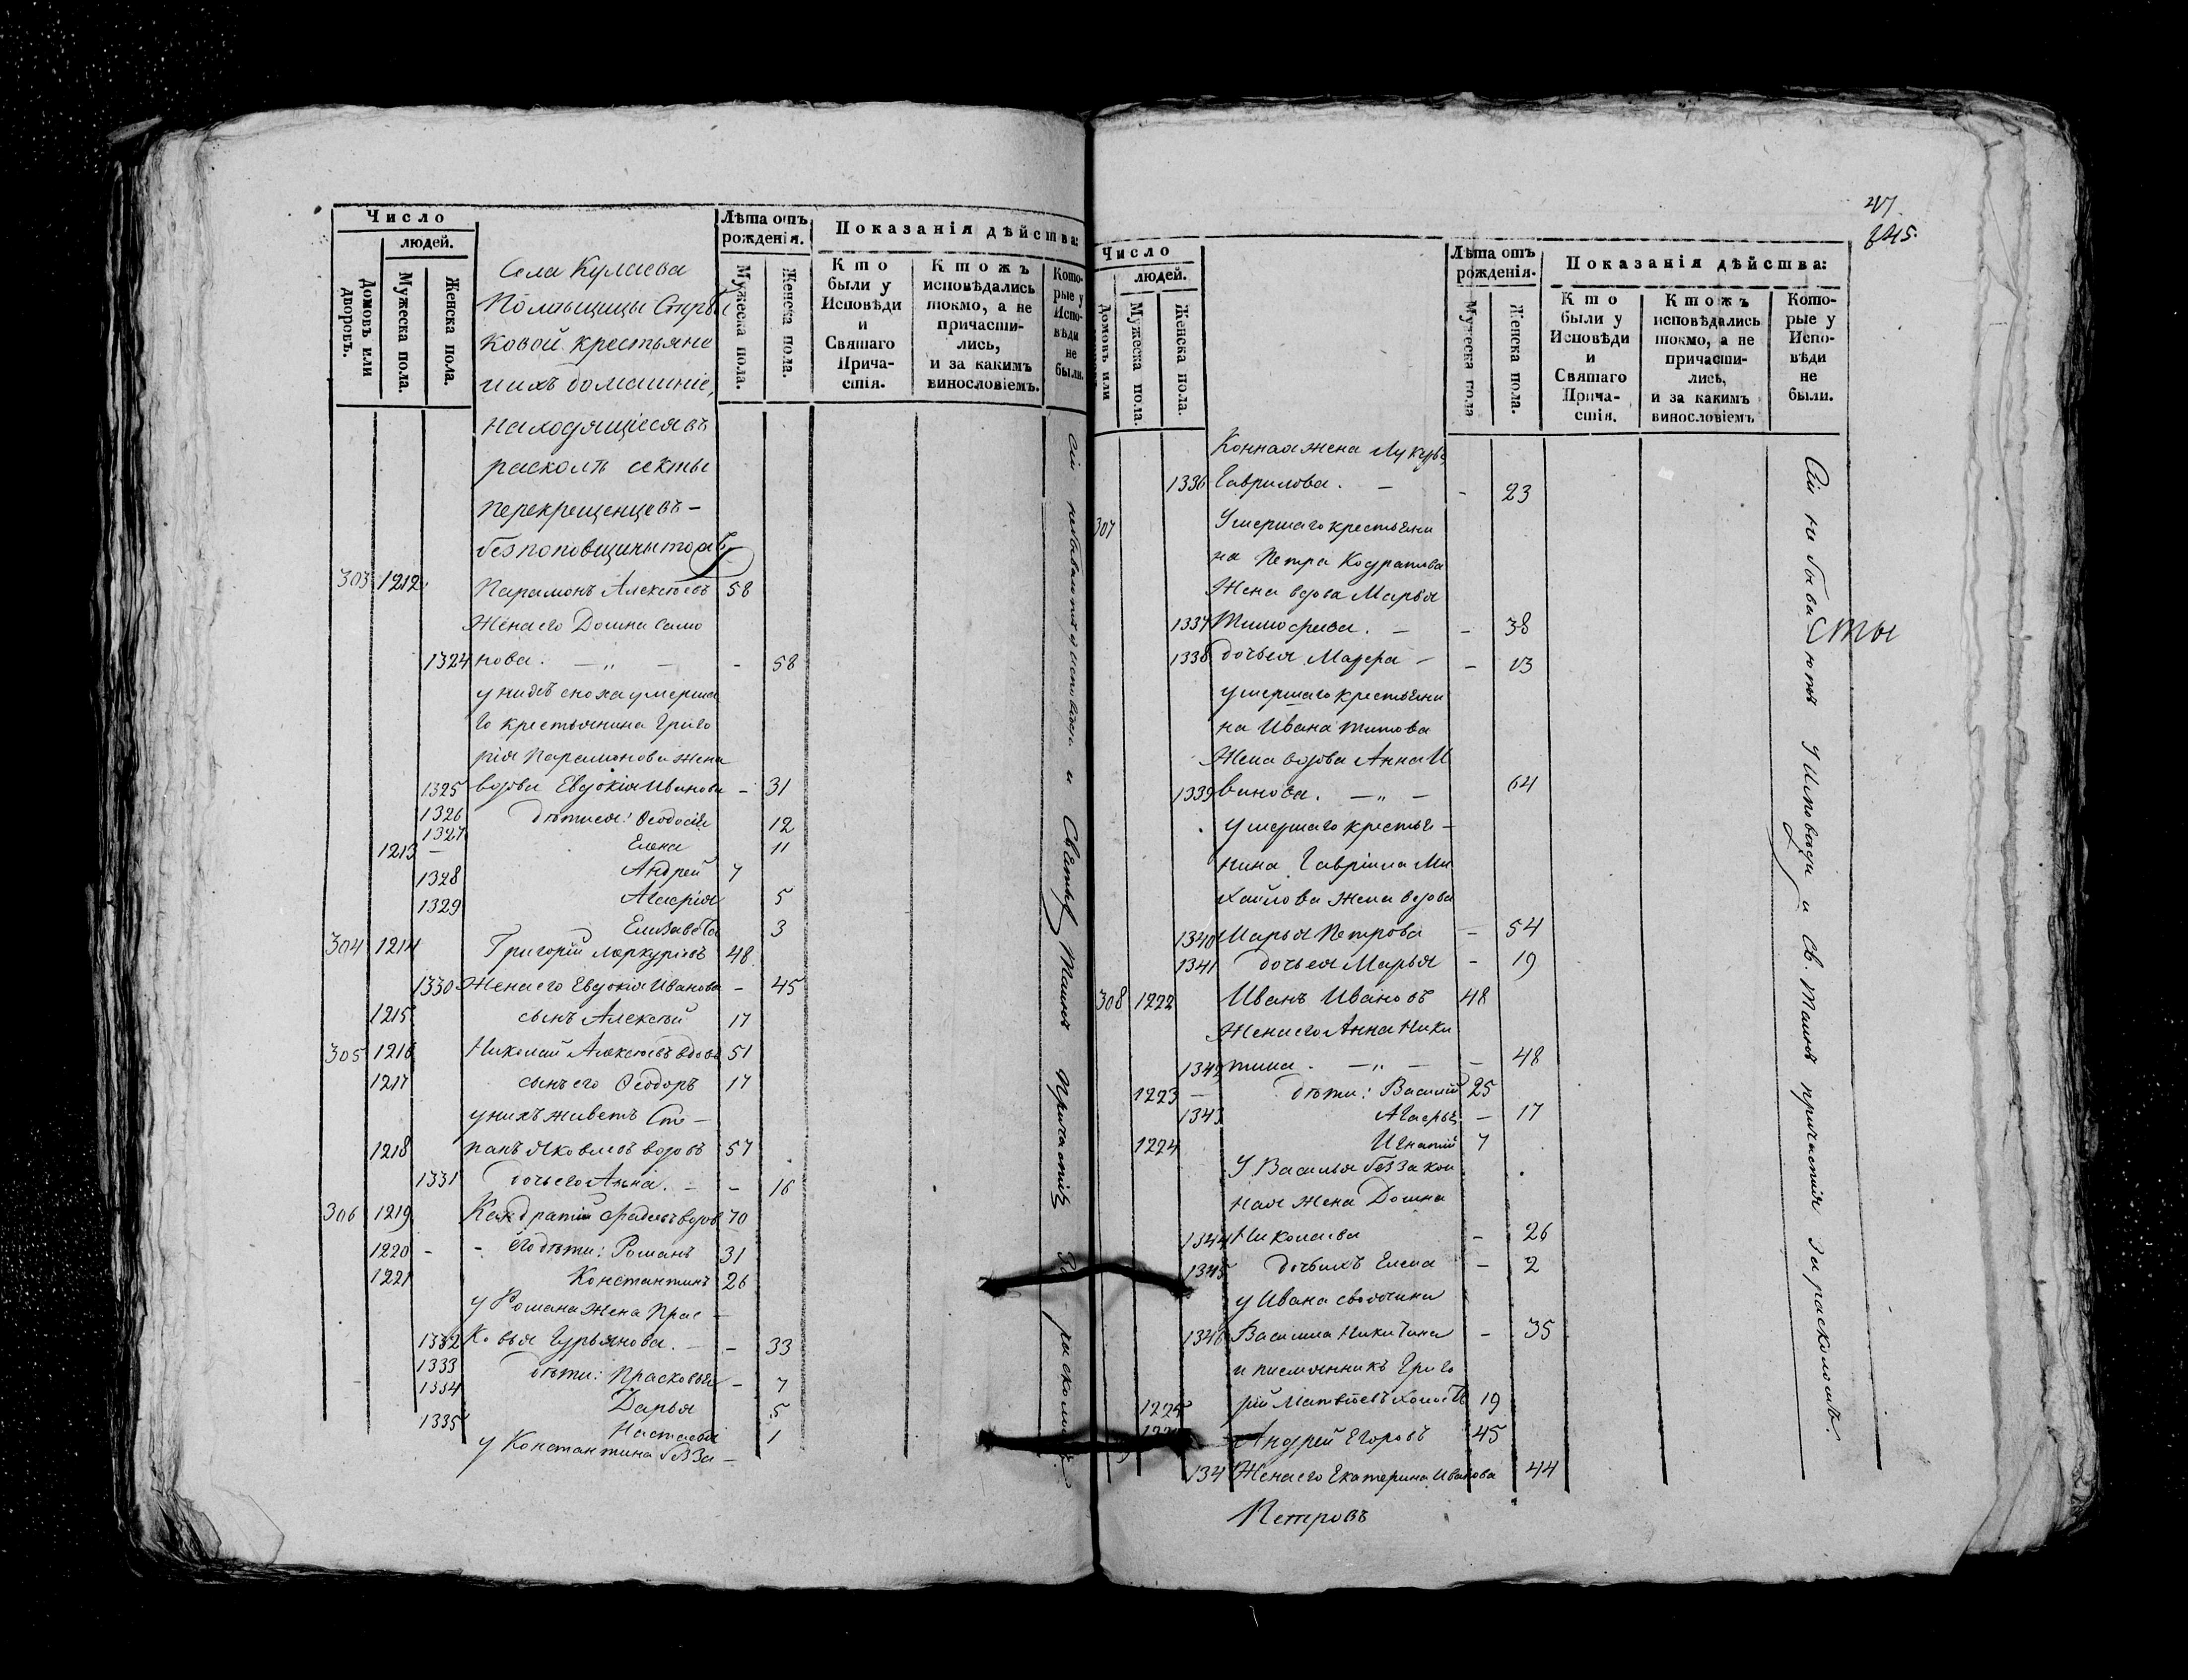 Число
людей.
Домовъ или дворовъ.
Мужеска пола.
Женска пола.
Лѣта отъ рожденія.
Мужеска пола.
Женска пола.
Показанія дѣйства:
Кто были у Исповѣди и Святаго Прича-стія.
Ктожъ исповѣдались токмо, а не причасти-лись, и за какимъ винословіемъ.
Кото-рые у Испо-вѣди не были.
Села Кулаева
Помѣщицы
ковой крестьяне
ихъ домашніе,
находящіеся въ
расколѣ секты
перекрещенцевъ –
безпоповщины
303 1212 Парамонъ Алексѣевъ 58
Жена его Домна Само
1324 нова. – „ – - 58
у нихъ сноха умерша
го крестьянина Григо
рія Парамонова жена
1325 вдова Евдокія Иванова - 31
1326 дѣти ея: Ѳеодосія 12
1327 Елена 11
1213 – Андрей 7
1328 Агафія 5
1329 Елизавета 3
304 1214 Григорій Меркурьевъ 48
1330 Жена его Евдокія Иванова - 45
1215 сынъ Алексѣй 17
305 1216 Николай Алексѣевъ вдовъ 51
1217 сынъ его Ѳеодоръ 17
у нихъ живетъ Сте –
1218 панъ Яковлевъ вдовъ 57
1331 дочь его Анна. – - 16
306 1219 Кондратій Фадеевъ вдовъ 70
1220 - - его дѣти: Романъ 31
1221 Константинъ 26
у Романа жена Прас –
1332 ковья Гурьянова. – - 33
1333 дѣти: Прасковья - 7
1334 Дарья 5
1335 Настасья 1
у Константина безза –
Сіи небываютъ у исповеди и Святыхъ Таинъ Причастія За расколомъ.
47
645.
Число
людей.
Домовъ или
Мужеска пола.
Женска пола.
Лѣта отъ рожденія.
Мужеска пола
Женска пола.
Показанія дѣйства:
Кто были у Исповѣди и Святаго Прича-стія.
Ктожъ исповѣдались токмо, а не причасти-лись, и за какимъ винословіемъ
Кото-рые у Испо-вѣди не были.
конная жена Лукерья
1336 Гаврилова. – - 23
307 Умершаго крестьяни
на Петра Кодратива
Жена вдова Марья
1337 Тимофеева. – - 38
1338 дочь ея Марфа – - 13
умершаго крестьяни
на Ивана Титова
Жена вдова Анна И
1339 ванова. – „ – 64
умершаго крестья –
нина Гавріила Ми
хайлова жена вдова
1340 Марья Петрова - 54
1341 дочь ея Марья - 19
308 1222 Иванъ Ивановъ 48
Жена его Анна Ники
тина. – „ – - 48
1223 – дѣти: Василій 25
1343 Агафья - 17
1224 Игнатій 7
У Василья беззакон
ная жена Домна
1344 Николаева - 26
1345 дочь ихъ Елена - 2
у Ивана своячина
1346 Василиса Никитина - 35
и племянникъ Григо
1225 рій Матвѣевъ холостъ 19
Андрей Егоровъ 45
134 Жена его Екатерина Иванова 44
Петровъ
Сіи не бываютъ у Исповѣди и Св. Таинъ причастія за расколомъ.